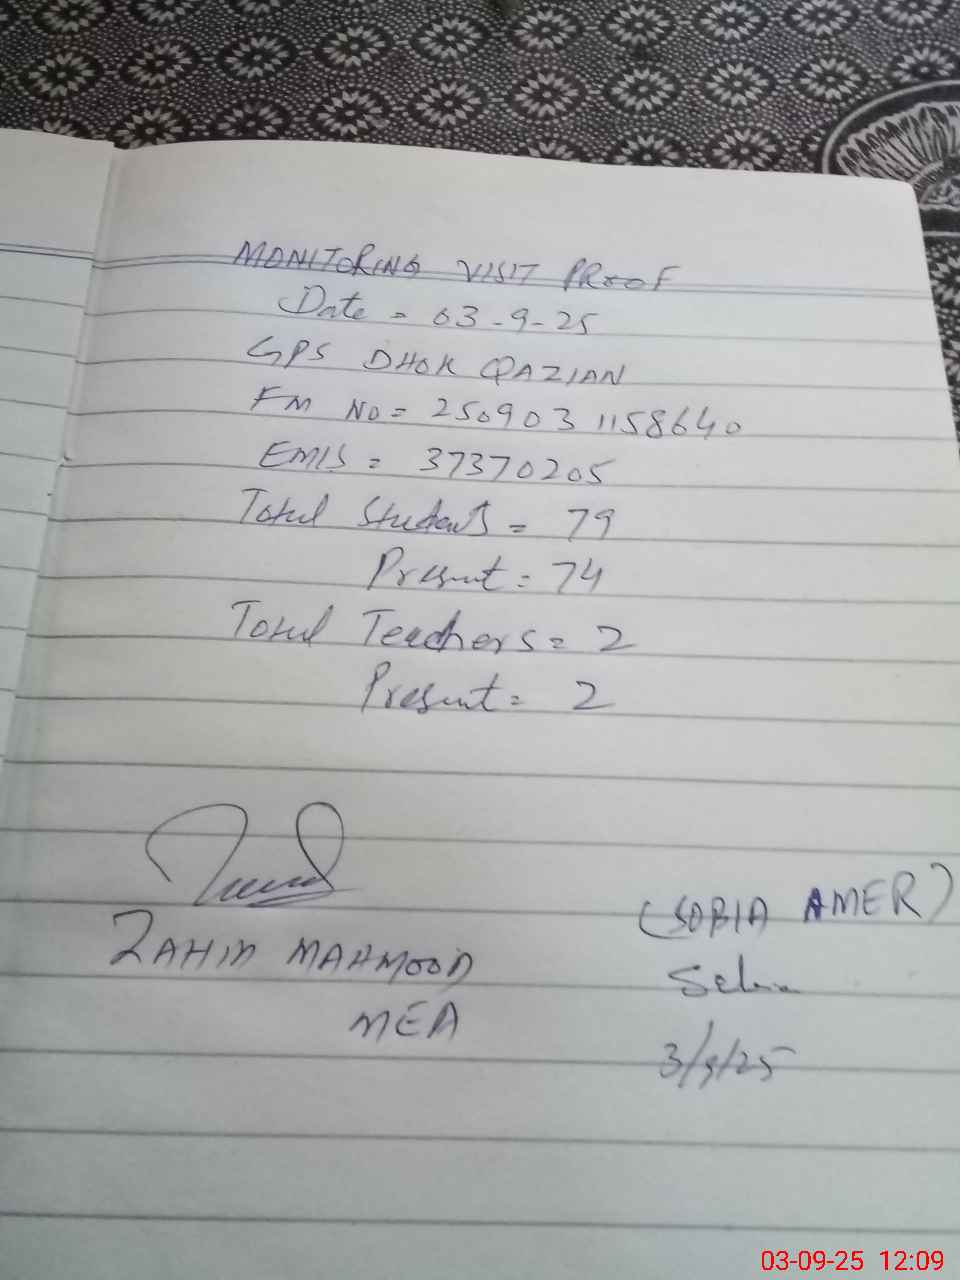 MONITORING VISIT PROOF
Date = 03-9-25
GPS DHOK QAZIAN
FM NO = 2509031158640
EMIS = 37370205
Total Students = 79
Present = 74
Total Teachers = 2
Present = 2
ZAHID MAHMOOD
MEA
(SOBIA AMER)
3/9/25
03-09-25 12:09